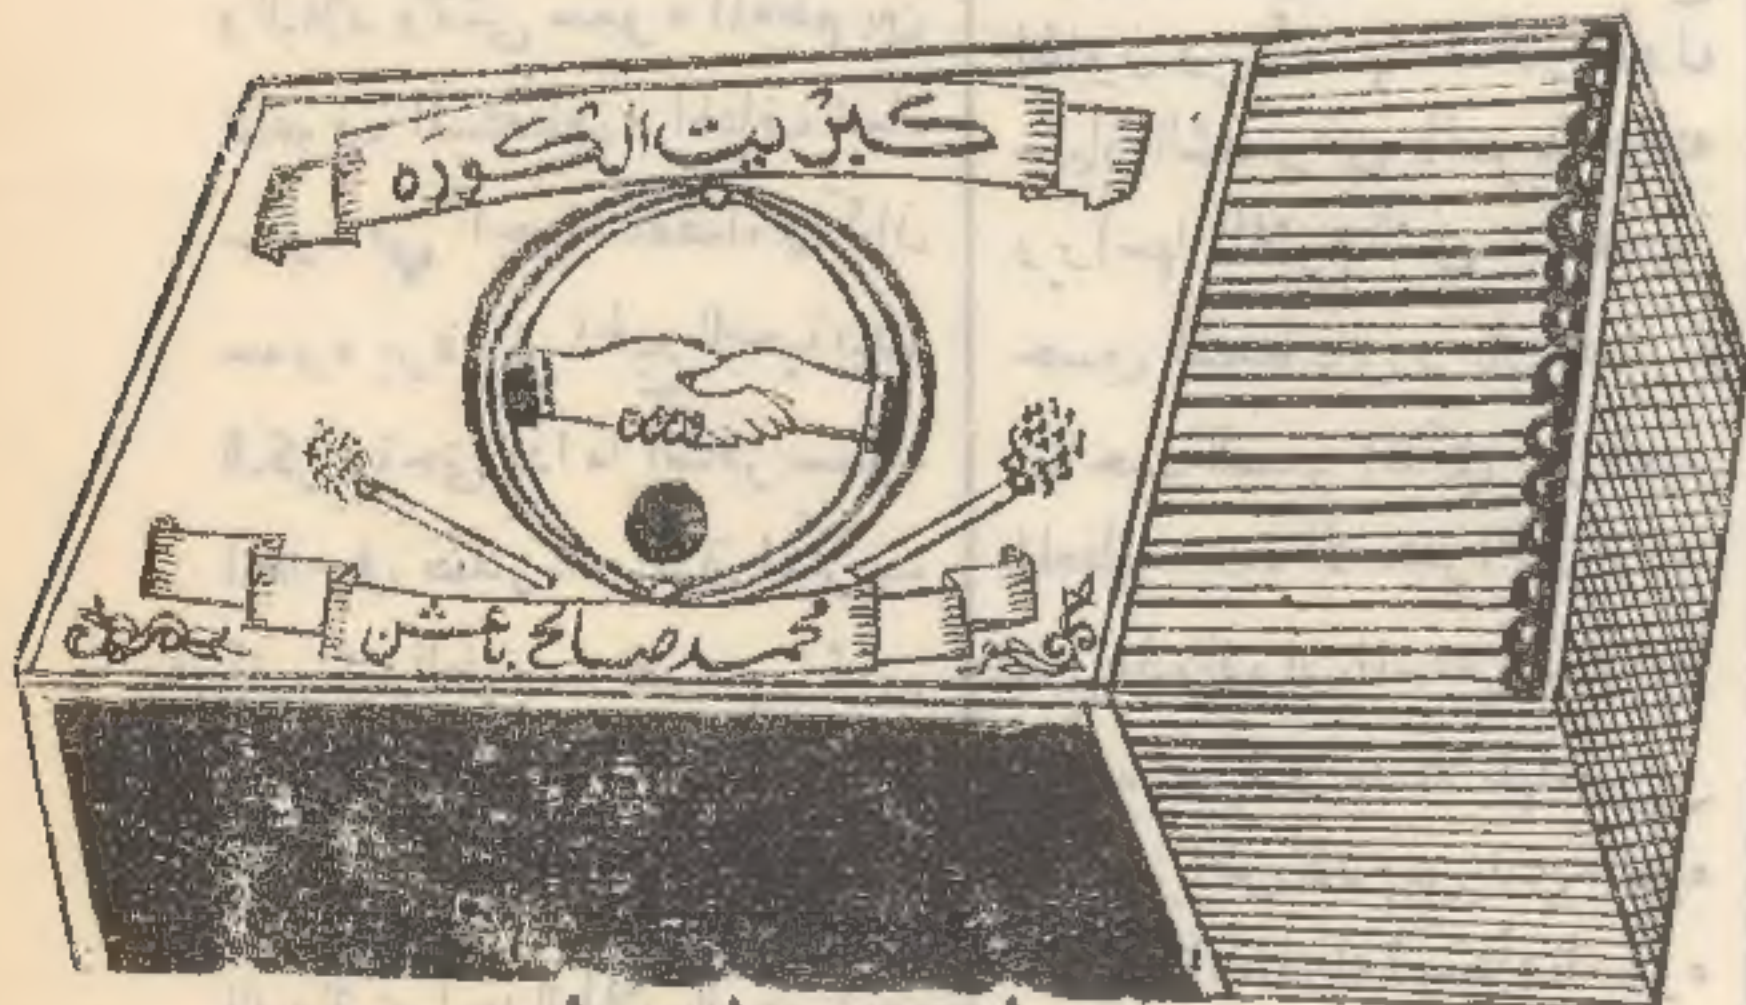 كبريت الكوره
محمد صالح باعشن